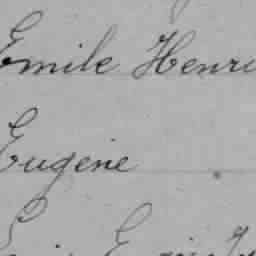 Emile Henri
Eugène